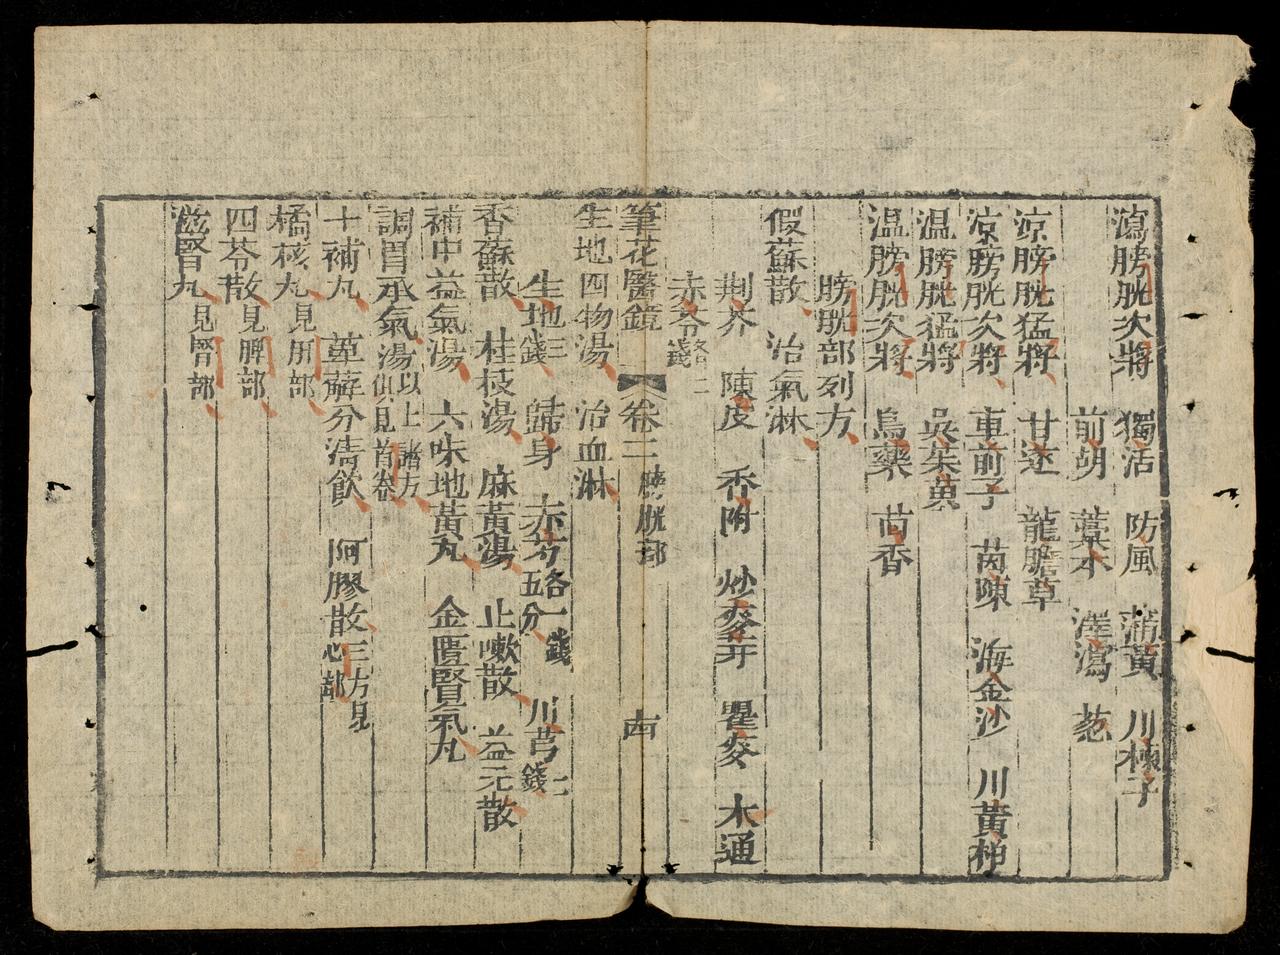 瀉膀胱次將　獨活　防風　蒲黃　川楝子
前胡　藁本　澤瀉　葱
凉膀胱猛將　甘遂　龍膽草
凉膀胱次將　車前子　茵陳　海金沙　川黃栢
温膀胱猛將　吳茱萸
温膀胱次將　烏藥　茴香
膀胱部列方
假蘇散　治氣淋
荆芥　陳皮　香附　炒麥芽　瞿麥　木通
赤苓各一錢
筆花醫鏡　卷二　膀胱部
生地四物湯　治血淋
生地三錢　歸身　赤芍各一錢五分　川芎七
香蘇散　桂枝湯　麻黃湯　止嗽散　益元散
補中益氣湯　六味地黃丸　金匱腎氣丸
調胃承氣湯以上諸方俱見首卷
十補丸　萆薢分清飲　阿膠散三方見心部
橘核丸見肝部
四苓散見脾部
滋腎丸見腎部